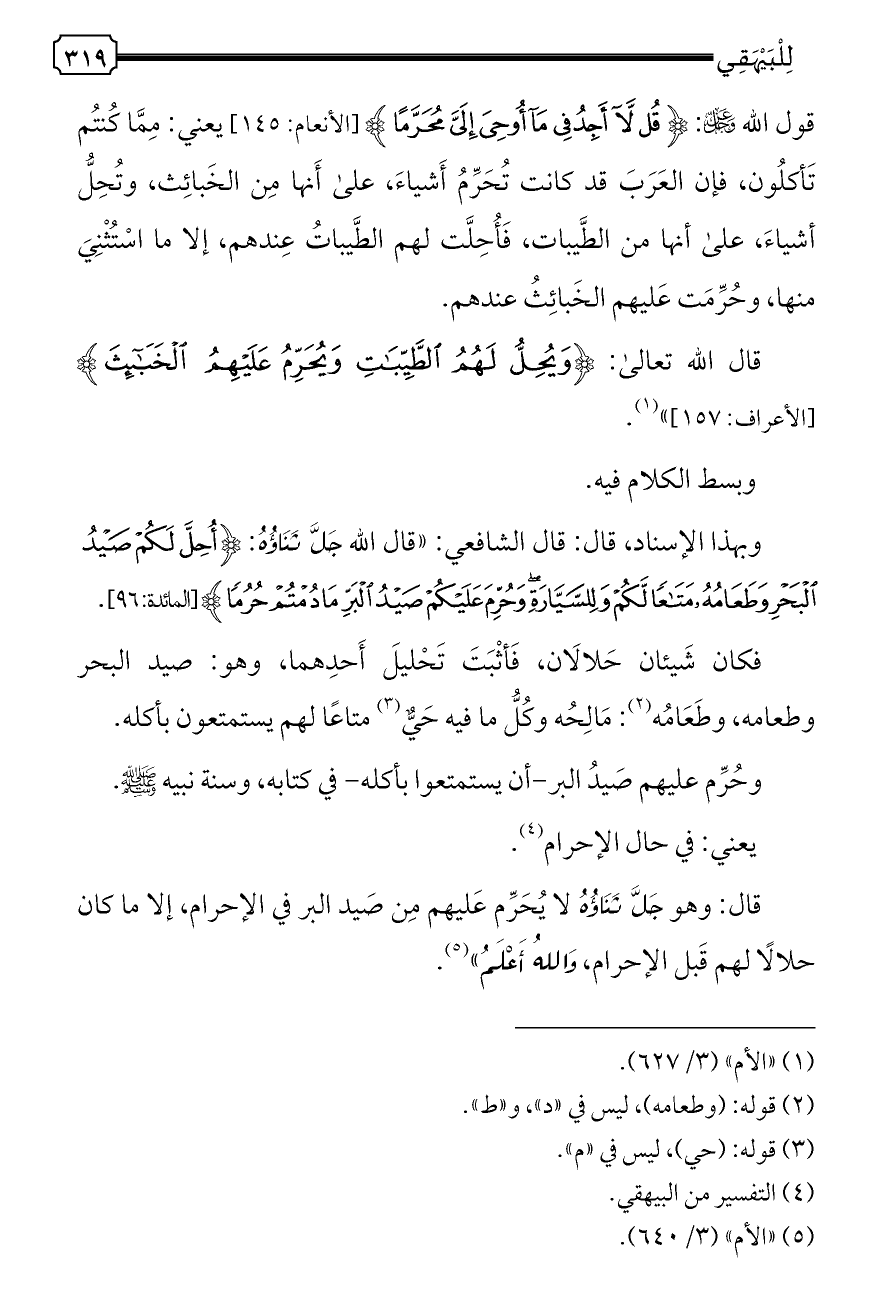 لِلْبَيْهَقِي
٣١٩
قول الله ﷿: ﴿قُل لَّآ أَجِدُ فِى مَآ أُوحِىَ إِلَىَّ مُحَرَّمًا﴾ [الأنعام: ١٤٥] يعني: مِمَّا كُنتُم
تَأكلُون، فإن العَرَبَ قد كانت تُحَرِّمُ أَشياءَ، علىٰ أَنها مِن الخَبائِث، وتُحِلُّ
أشياءَ، علىٰ أنها من الطَّيبات، فَأُحِلَّت لهم الطَّيباتُ عِندهم، إلا ما اسْتُثْنِيَ
منها، وحُرِّمَت عَليهم الخَبائِثُ عندهم.
قال الله تعالىٰ: ﴿وَيُحِلُّ لَهُمُ ٱلطَّيِّبَٰتِ وَيُحَرِّمُ عَلَيْهِمُ ٱلْخَبَٰٓئِثَ﴾
[الأعراف: ١٥٧]»(١).
وبسط الكلام فيه.
وبهذا الإسناد، قال: قال الشافعي: «قال الله جَلَّ ثَنَاؤُهُ: ﴿أُحِلَّ لَكُمْ صَيْدُ
ٱلْبَحْرِ وَطَعَامُهُۥ مَتَٰعًا لَّكُمْ وَلِلسَّيَّارَةِۖ وَحُرِّمَ عَلَيْكُمْ صَيْدُ ٱلْبَرِّ مَا دُمْتُمْ حُرُمًا﴾ [المائدة: ٩٦].
فكان شَيئان حَلالَان، فَأَثْبَتَ تَحْليلَ أَحدِهما، وهو: صيد البحر
وطعامه، وطَعَامُه(٢): مَالِحُه وكُلُّ ما فيه حَيٌّ(٣) متاعًا لهم يستمتعون بأكله.
وحُرِّم عليهم صَيدُ البر -أن يستمتعوا بأكله- في كتابه، وسنة نبيه ﷺ.
يعني: في حال الإحرام(٤).
قال: وهو جَلَّ ثَنَاؤُهُ لا يُحَرِّم عَليهم مِن صَيد البر في الإحرام، إلا ما كان
حلالًا لهم قَبل الإحرام، وَاللهُ أَعْلَمُ»(٥).
(١) «الأم» (٣/ ٦٢٧).
(٢) قوله: (وطعامه)، ليس في «د»، و«ط».
(٣) قوله: (حي)، ليس في «م».
(٤) التفسير من البيهقي.
(٥) «الأم» (٣/ ٦٤٠).